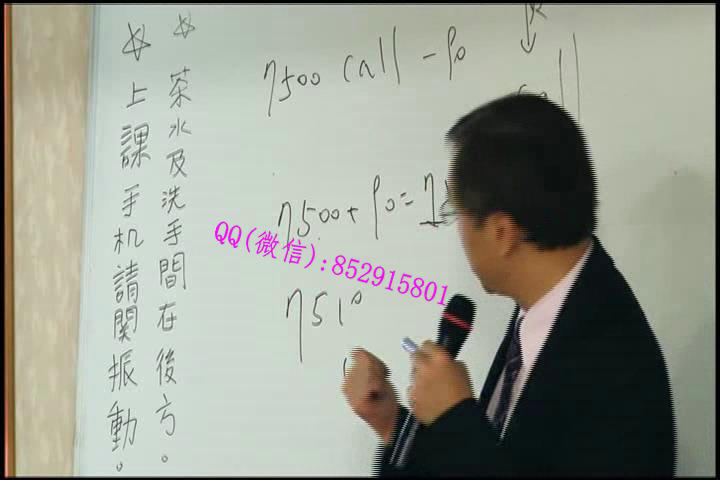 ☆ 茶水及洗手間在後方。
☆ 上課手机請関振動。
7500 call -
call
7500+
7510
QQ(微信):852915801